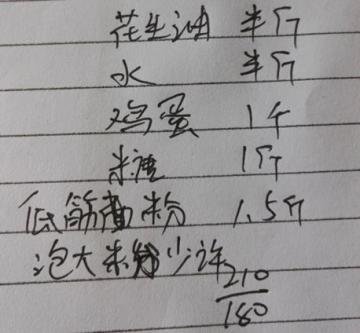 花生油 半斤
水 半斤
鸡蛋 1斤
糖 1斤
低筋面粉 1.5斤
泡大粉少许
210
180